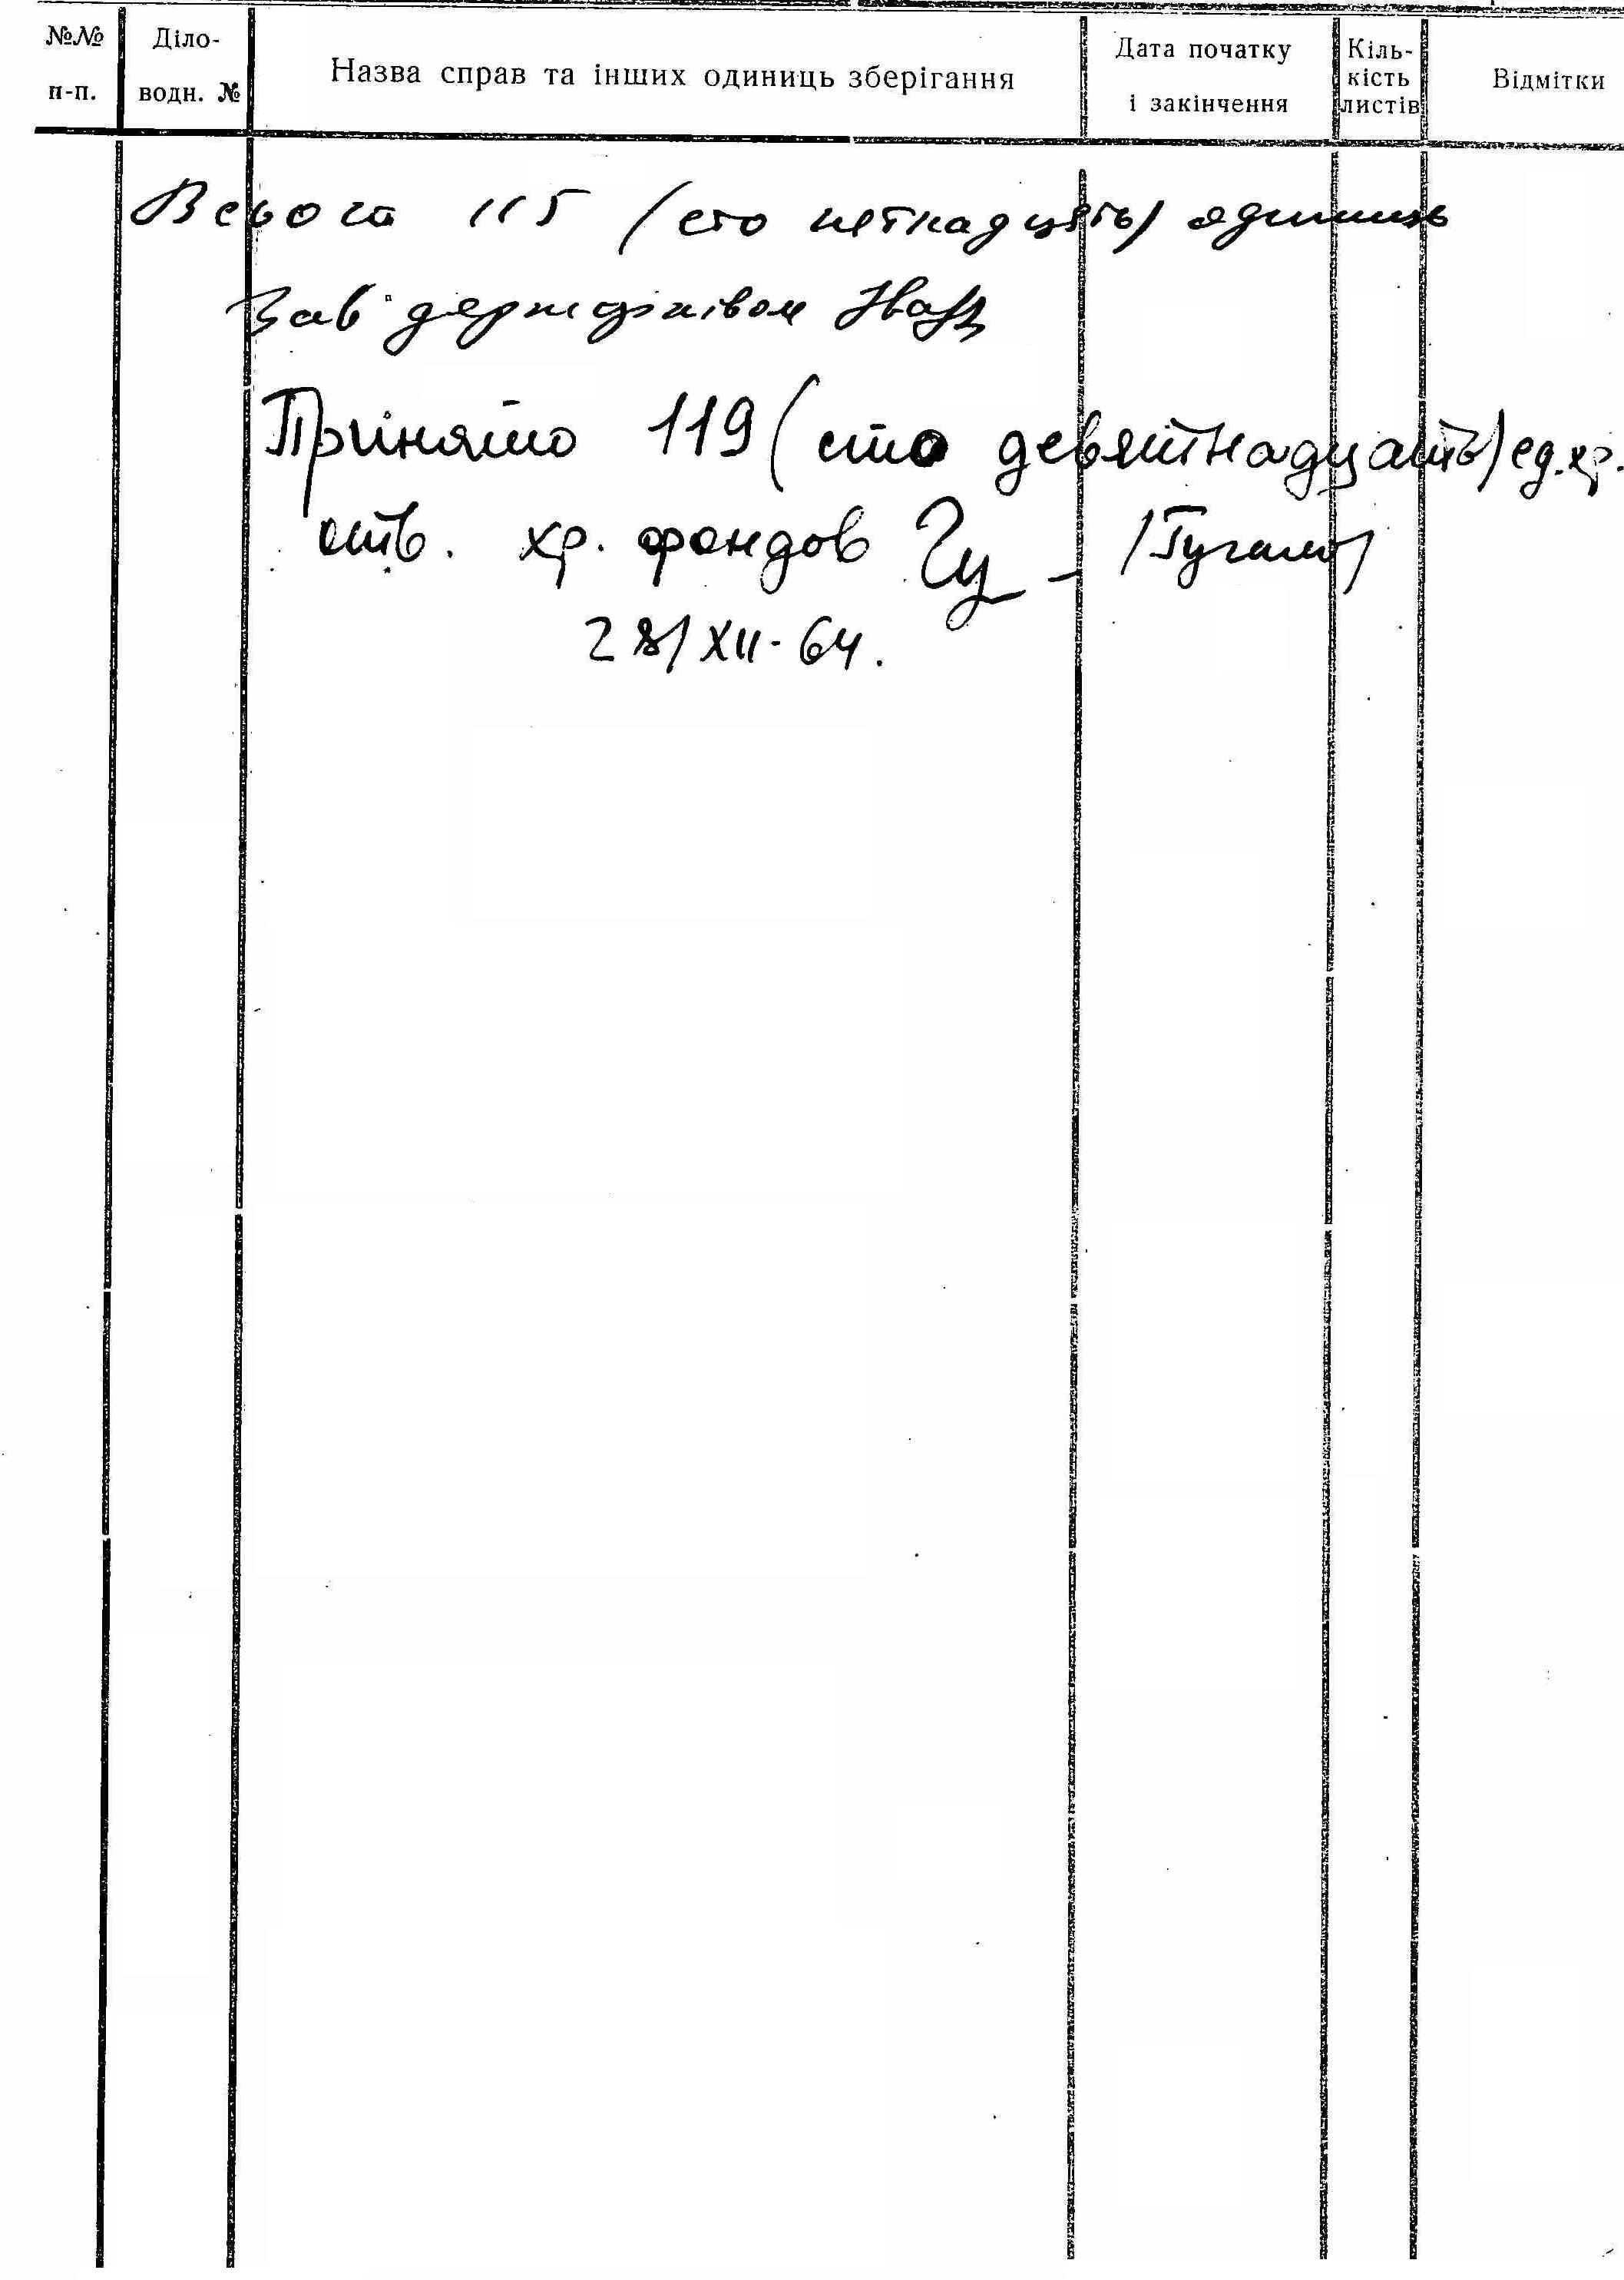 №№ п-п.
Діло- водн. №
Назва справ та інших одиниць зберігання
Дата початку і закінчення
Кіль- кість листів
Відмітки
Всього 115 (сто пятнадцять) одиниць
Зав держархівом
Прінято 119 (сто девятнадцать) ед.хр.
отв. хр. фондов
28/XII-64.